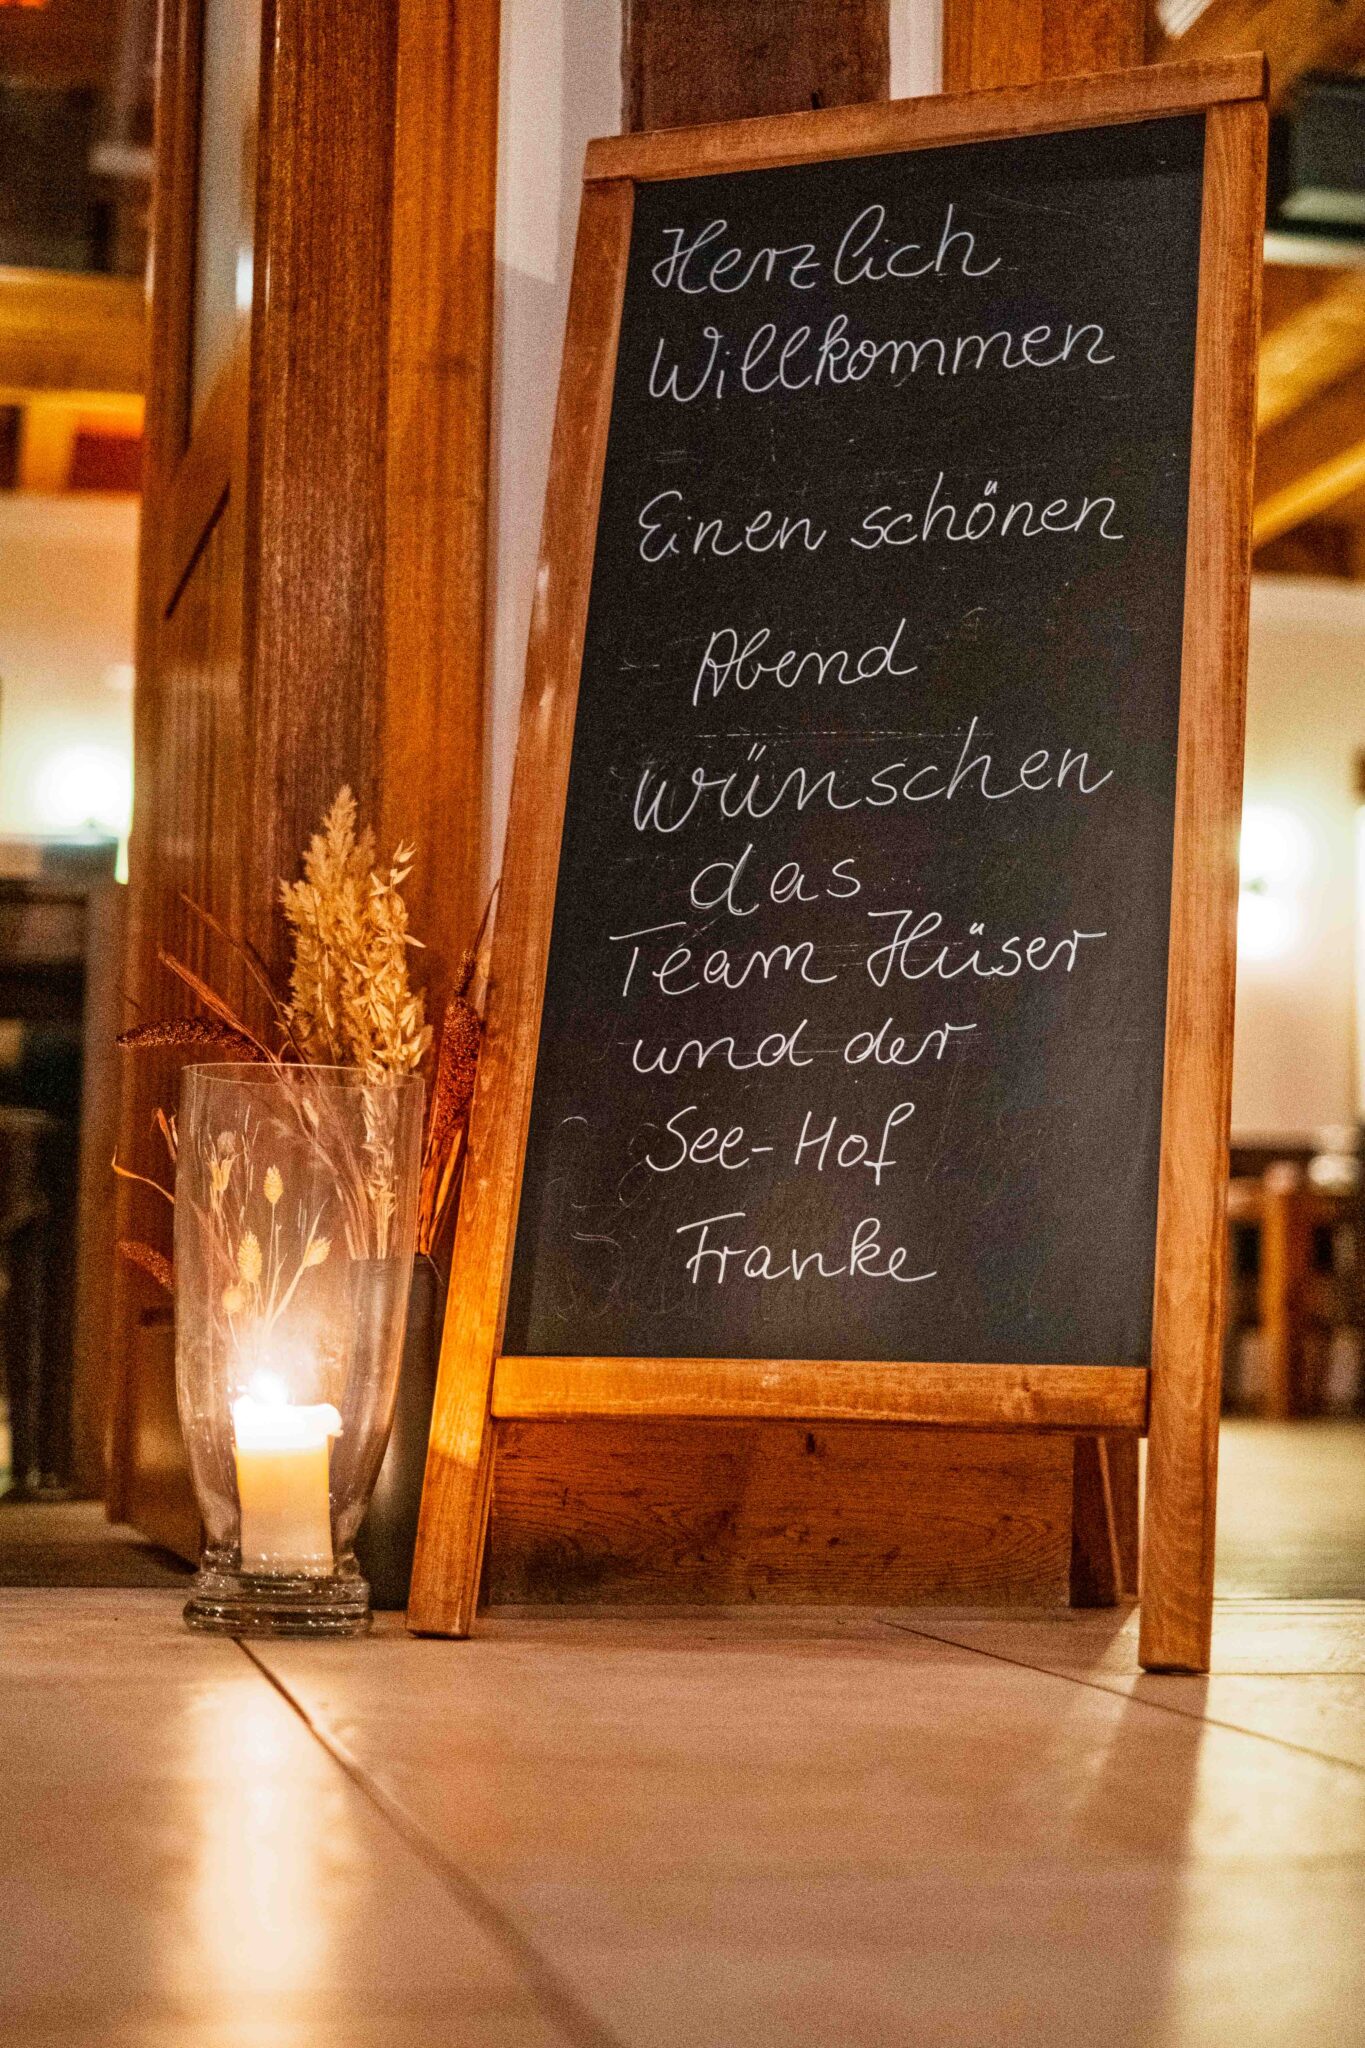 Herzlich
Willkommen
Einen schönen
Abend
wünschen
das
Team Hüser
und der
See-Hof
Franke